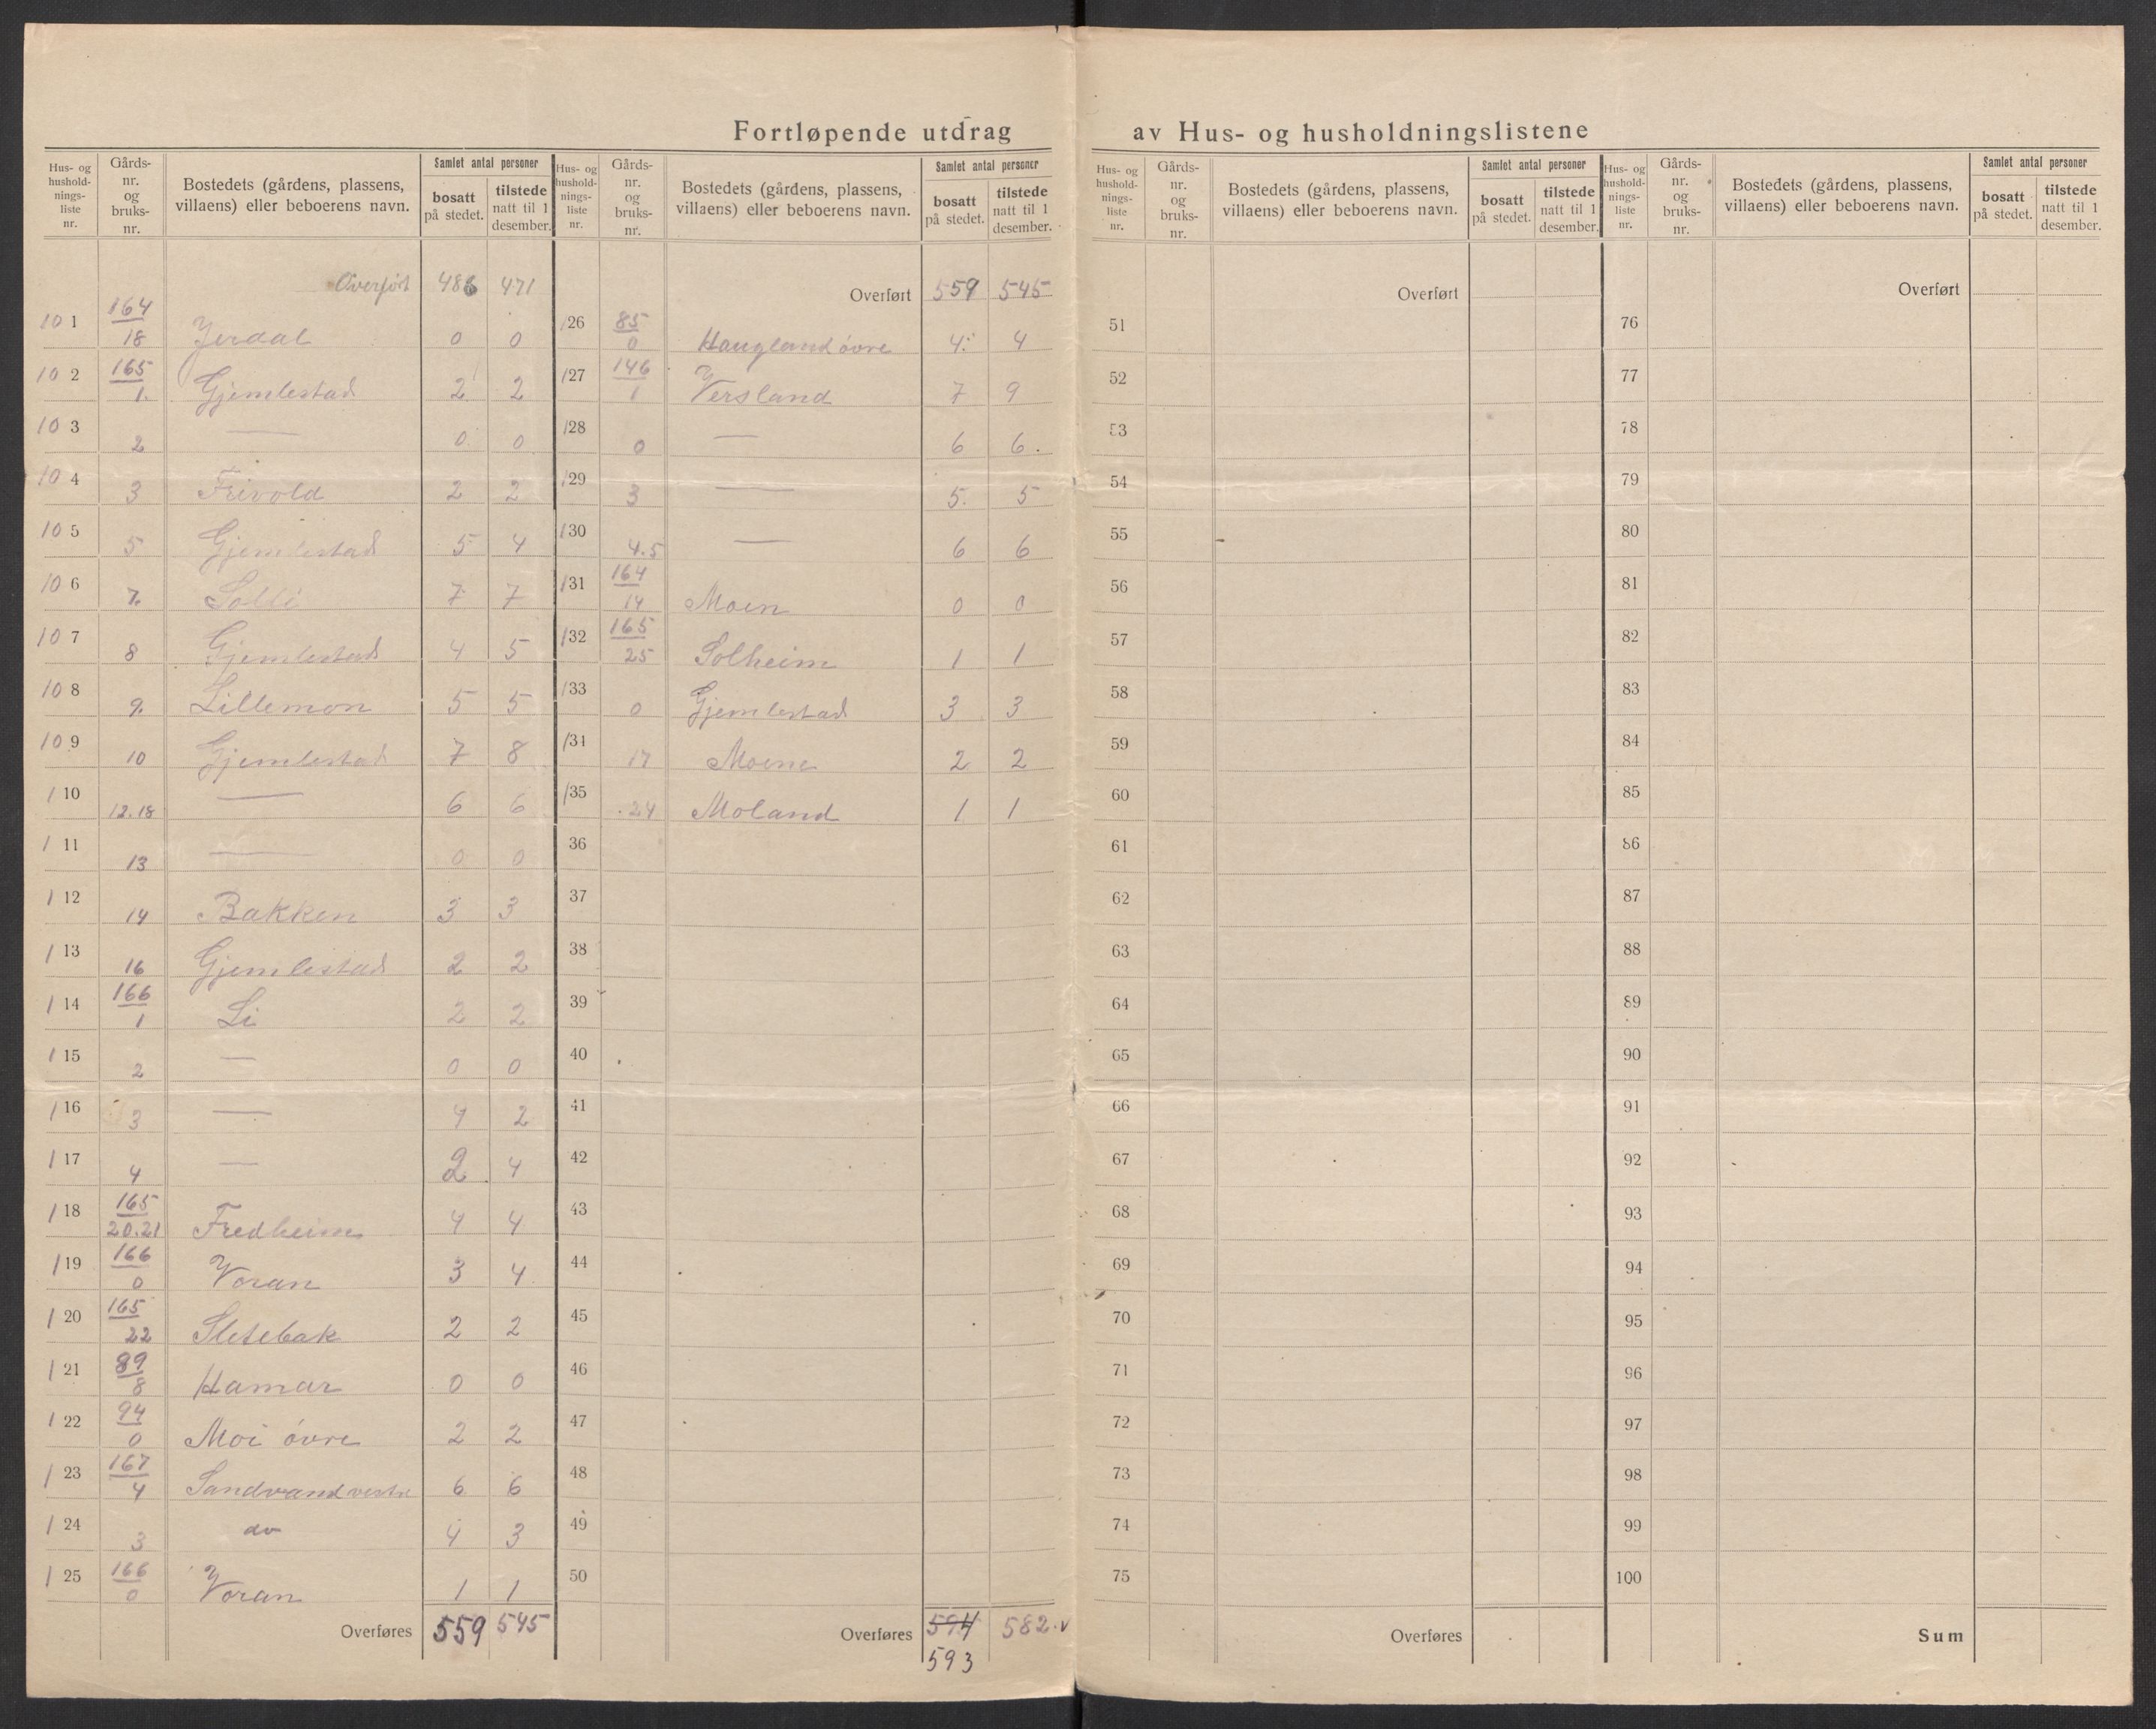 Fortløpende utdrag av Hus- og husholdningslistene
Hus- og hushold- nings- liste nr. | Gårds- nr. og bruks- nr. | Bostedets (gårdens, plassens, villaens) eller beboerens navn. | Samlet antal personer bosatt på stedet. | tilstede natt til 1 desember.
Overført 486 471
101 164/18 Jerdal 0 0
102 165/1. Gjemlestad 2 2
103 2 — 0 0
104 3 Frivold 2 2
105 5 Gjemlestad 5 4
106 7. Solli 7 7
107 8 Gjemlestad 4 5
108 9. Lillemon 5 5
109 10 Gjemlestad 7 8
110 12.18 — 6 6
111 13 — 0 0
112 14 Bakken 3 3
113 16 Gjemlestad 2 2
114 166/1 Li 2 2
115 2 — 0 0
116 3 — 4 2
117 4 — 2 4
118 165/20.21 Fredheim 4 4
119 166/0 Voran 3 4
120 165/22 Sletebak 2 2
121 89/8 Hamar 0 0
122 94/0 Moi óvre 2 2
123 167/4 Sandvand vestre 6 6
124 3 do 4 3
125 166/0 Voran 1 1
Overføres 559 545
Hus- og hushold- nings- liste nr. | Gårds- nr. og bruks- nr. | Bostedets (gårdens, plassens, villaens) eller beboerens navn. | Samlet antal personer bosatt på stedet. | tilstede natt til 1 desember.
Overført 559 545
126 85/0 Haugland óvre 4 4
127 146/1 Versland 7 9
128 0 — 6 6.
129 3 — 5. 5
130 4.5 — 6 6
131 164/14 Moen 0 0
132 165/25 Solheim 1 1
133 0 Gjemlestad 3 3
134 17 Moene 2 2
135 24 Moland 1 1
36
37
38
39
40
41
42
43
44
45
46
47
48
49
50
Overføres 594 582 v
593
Hus- og hushold- nings- liste nr. | Gårds- nr. og bruks- nr. | Bostedets (gårdens, plassens, villaens) eller beboerens navn. | Samlet antal personer bosatt på stedet. | tilstede natt til 1 desember.
Overført
51
52
53
54
55
56
57
58
59
60
61
62
63
64
65
66
67
68
69
70
71
72
73
74
75
Overføres
Hus- og hushold- nings- liste nr. | Gårds- nr. og bruks- nr. | Bostedets (gårdens, plassens, villaens) eller beboerens navn. | Samlet antal personer bosatt på stedet. | tilstede natt til 1 desember.
Overført
76
77
78
79
80
81
82
83
84
85
86
87
88
89
90
91
92
93
94
95
96
97
98
99
100
Sum